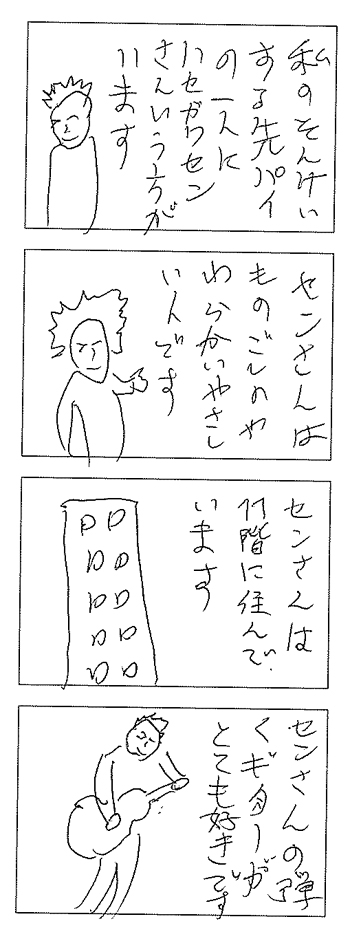 私のそんけい
する先パイ
の一人に
ハセガワセン
さんいう方が
います
センさんは
ものごしのや
わらかいやさし
い人です
センさんは
11階に住んで
います
センさんの弾
くギターが
とても好きです